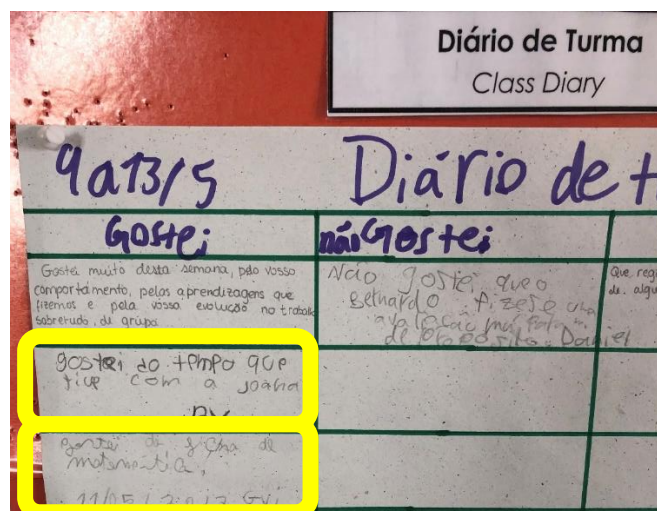 Diário de Turma
Class Diary
9 a 13/5
Diário de t
Gostei
não Gostei
Gostei muito desta semana, pelo vosso
comportamento, pelas aprendizagens que
fizemos e pela vossa evolução no trabalho
sobretudo, de grupo.
Não gostei que o
Bernardo fizese uma
avaliação
de proposito. Daniel
Que, reg
de. algu
gostei do tempo que
tive com a joana
gostei da ficha de
matemática,